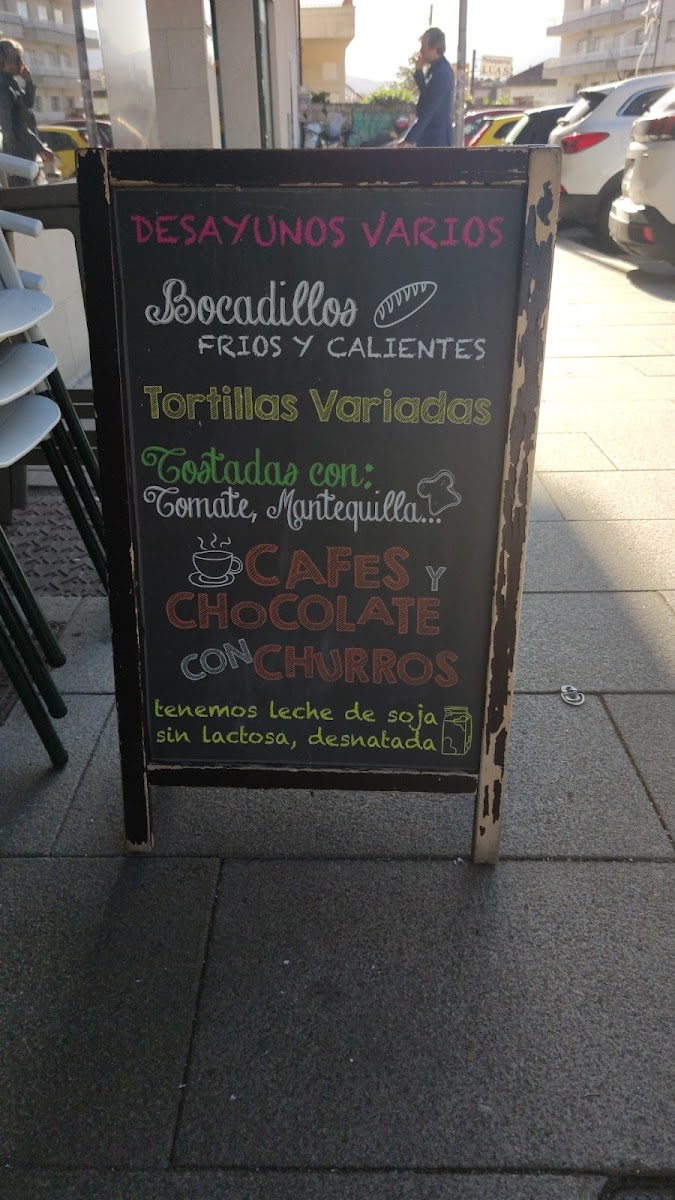 DESAYUNOS VARIOS
Bocadillos
FRIOS Y CALIENTES
Tortillas Variadas
Tostadas con:
Tomate, Mantequilla...
CAFES Y
CHOCOLATE
CON CHURROS
tenemos leche de soja
sin lactosa, desnatada